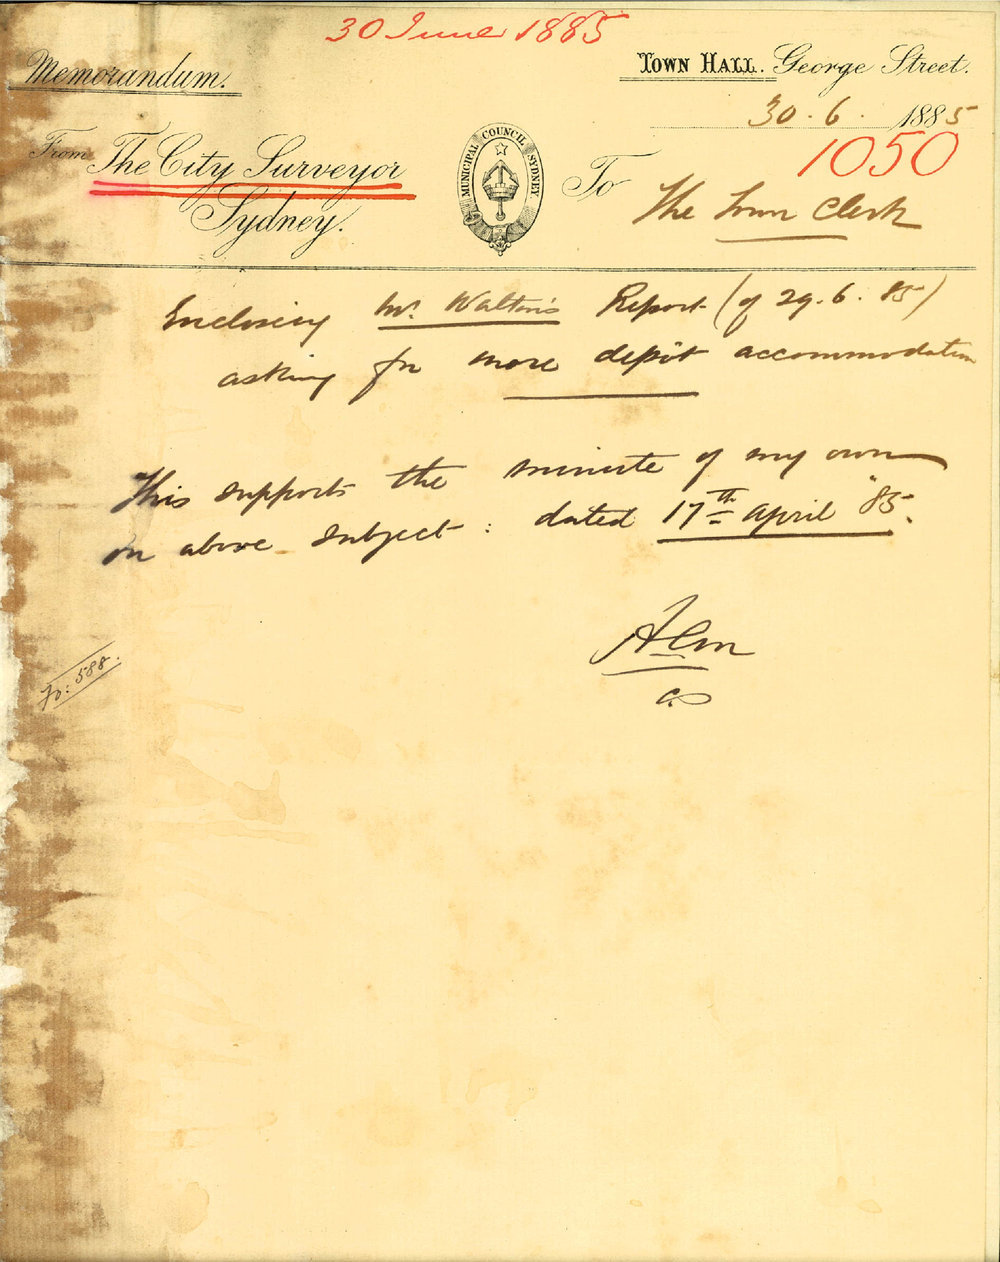 30 June 1885
Memorandum.
TOWN HALL. George Street.
30 . 6 . 1885
1050
From The City Surveyor
Sydney.
MUNICIPAL COUNCIL SYDNEY
To
The Town Clerk
Enclosing Mr. Walton's Report (of 29.6.85)
asking for more depôt accommodation
This supports the minute of my own
on above subject : dated 17th April '85.
CS
Fo: 588.